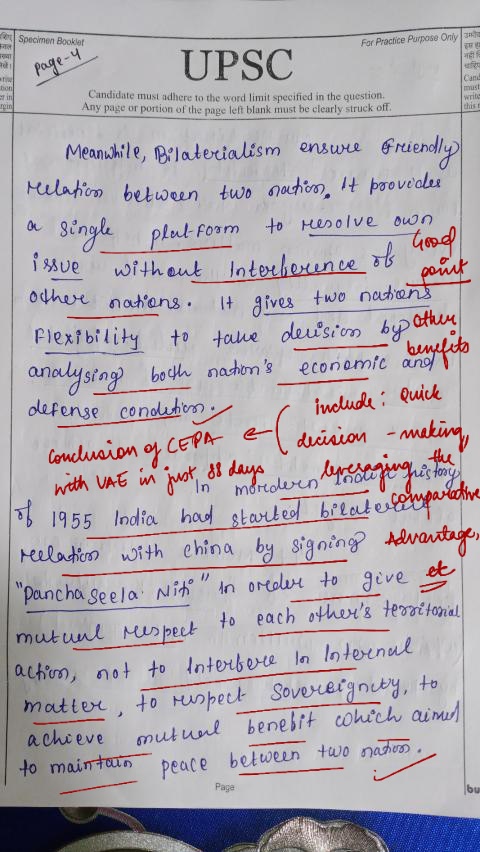 Specimen Booklet
For Practice Purpose Only
Page-4
UPSC
Candidate must adhere to the word limit specified in the question.
Any page or portion of the page left blank must be clearly struck off.
Meanwhile, Bilaterialism ensure friendly
relation between two nation. It provides
a single platform to resolve own
issue without Interference of
Good point
other nations. It gives two nations
Flexibility to take decision by
analysing both nation's economic and
defense condition.
Other benefits include: Quick decision-making, leveraging the comparative Advantage, etc
Conclusion of CEPA
with UAE in just 88 days
In mordern Indian history
of 1955 India had started bilateral
relation with china by signing
"Panchaseela Niti" In order to give
mutual respect to each other's territorial
action, not to Interfere In Internal
matter, to respect Sovereignity, to
achieve mutual benefit which aimed
to maintain peace between two nation.
Page
bu